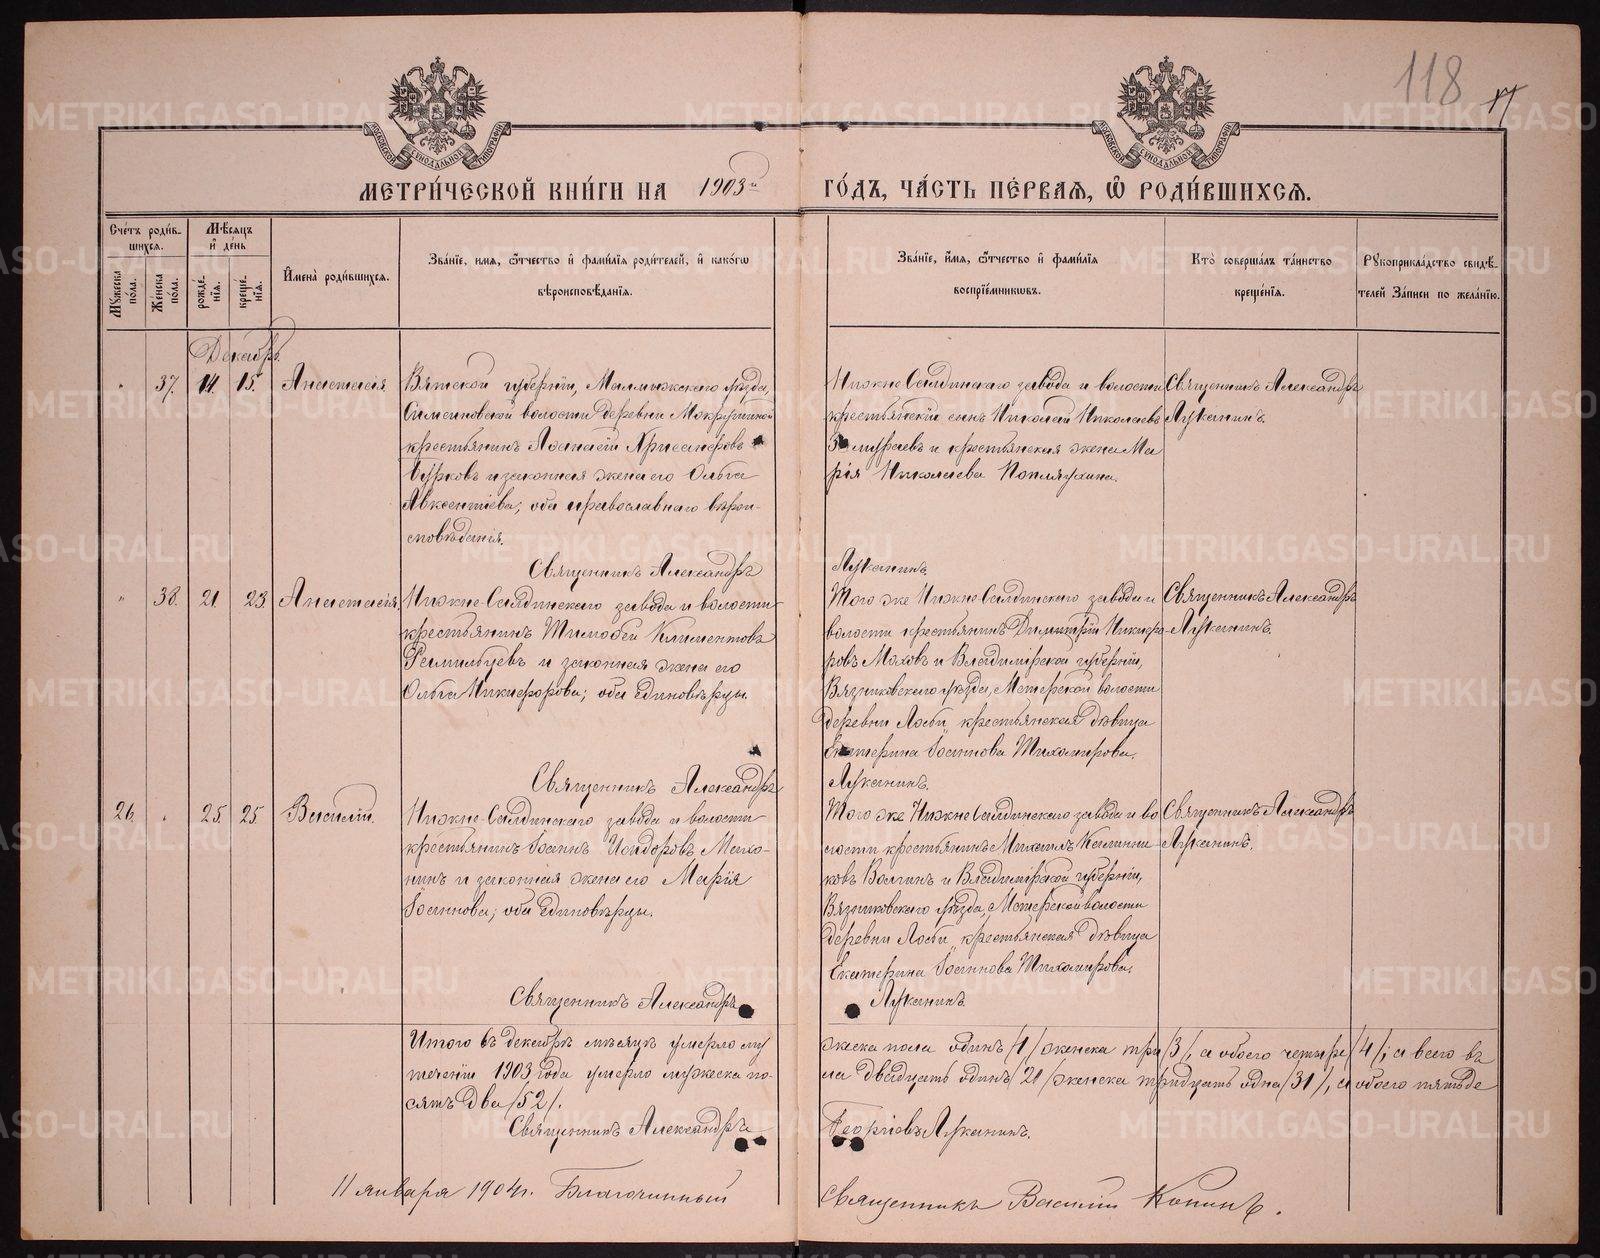 118
МЕТРИ́ЧЕСКОЙ КНИ́ГИ НА 1903й ГО́ДЪ, ЧА́СТЬ ПЕ́РВАЯ, Ѡ РОДИ́ВШИХСЯ.
Сче́тъ роди́вшихся.
Мѣ́сяцъ и де́нь
Му́жеска по́ла.
Же́нска по́ла.
рожде́нїя.
креще́нїя.
И҆мена̀ роди́вшихся.
Зва́нїе, и́мя, ѻ҆́тчество и҆ фами́лїя роди́телей, и҆ како́гѡ вѣроисповѣ́данїя.
Зва́нїе, и҆́мя, ѻ҆́тчество и҆ фами́лїя воспрїе́мникѡвъ.
Кто̀ соверша́лъ та́инство креще́нїя.
Рꙋкоприкла́дство свидѣ́телей За́писи по жела́нїю.
Декабрь
" 37. 14. 15. Анастасія
Вятской губерніи, Малмыжскаго уѣзда,
волости деревни
крестьянинъ Аѳанасій Хрисанфовъ
Бурковъ и законная жена его Ольга
Авксентіева; оба православнаго вѣрои-
сповѣданія.
Священникъ Александръ Луканинъ.
Нижне-Салдинскаго завода и волости
крестьянскій сынъ Николай Николаевъ
и крестьянская жена Ма-
рія Николаева Поплаухина.
Священникъ Александръ
Луканинъ.
" 38. 21. 23. Анастасія
Нижне-Салдинскаго завода и волости
крестьянинъ Тимоѳей Климентовъ
и законная жена его
Ольга Никифорова; оба единовѣрцы.
Священникъ Александръ Луканинъ.
Того же Нижне-Салдинскаго завода и
волости крестьянинъ Димитрій Никифо-
ровъ Маховъ и Владимірской губерніи,
Вязниковскаго уѣзда, Мстерской волости
деревни крестьянская дѣвица
Екатерина Іоаннова Тихомирова.
Священникъ Александръ
Луканинъ.
26. " 25 25 Василій.
Нижне-Салдинскаго завода и волости
крестьянинъ Іоаннъ Исидоровъ Махо-
нинъ и законная жена его Марія
Іоаннова; оба единовѣрцы.
Священникъ Александръ Луканинъ.
Того же Нижне-Салдинскаго завода и во
лости крестьянинъ Михаилъ Калинни-
ковъ Волгинъ и Владимірской губерніи,
Вязниковскаго уѣзда, Мстерской волости
деревни крестьянская дѣвица
Екатерина Іоаннова Тихомирова.
Священникъ Александръ
Луканинъ.
Итого въ декабрѣ мѣсяцѣ умерло му жеска пола одинъ /1/ женска три /3/, а обоего четыре /4/; а всего въ
теченіи 1903 года умерло мужеска по- ла двадцать одинъ /21/ женска тридцать одна /31/, а обоего пятьде
сятъ два /52/.
Священникъ Александръ Георгіевъ Луканинъ.
11 января 1904 г. Благочинный Священникъ Василій Копинъ.
METRIKI.GASO-URAL.RU